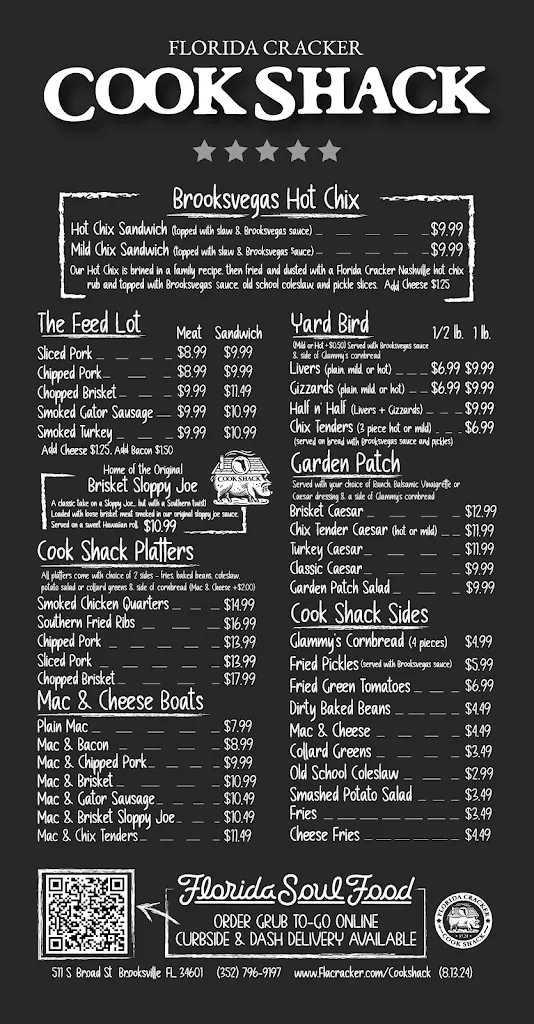 FLORIDA CRACKER
COOK SHACK
Brooksvegas Hot Chix
Hot Chix Sandwich (topped with slaw & Brooksvegas sauce) $9.99
Mild Chix Sandwich (topped with slaw & Brooksvegas sauce) $9.99
Our Hot Chix is brined in a family recipe, then fried and dusted with a Florida Cracker Nashville hot chix
rub and topped with Brooksvegas sauce, old school coleslaw, and pickle slices. Add Cheese $1.25
The Feed Lot Meat Sandwich
Sliced Pork $8.99 $9.99
Chipped Pork $8.99 $9.99
Chopped Brisket $9.99 $11.49
Smoked Gator Sausage $9.99 $10.99
Smoked Turkey $9.99 $10.99
Add Cheese $1.25, Add Bacon $1.50
Home of the Original
Brisket Sloppy Joe
A classic take on a Sloppy Joe... but with a Southern twist!
Loaded with loose brisket meat smoked in our original sloppy joe sauce.
Served on a sweet Hawaiian roll. $10.99
COOK SHACK
Cook Shack Platters
All platters come with choice of 2 sides - fries, baked beans, coleslaw,
potato salad or collard greens & side of cornbread (Mac & Cheese +$2.00)
Smoked Chicken Quarters $14.99
Southern Fried Ribs $16.99
Chipped Pork $13.99
Sliced Pork $13.99
Chopped Brisket $17.99
Mac & Cheese Boats
Plain Mac $7.99
Mac & Bacon $8.99
Mac & Chipped Pork $9.99
Mac & Brisket $10.99
Mac & Gator Sausage $10.49
Mac & Brisket Sloppy Joe $10.49
Mac & Chix Tenders $11.49
Yard Bird 1/2 lb. 1 lb.
(Mild or Hot +$0.50) Served with Brooksvegas sauce
& side of Glammy's cornbread
Livers (plain, mild, or hot) $6.99 $9.99
Gizzards (plain, mild, or hot) $6.99 $9.99
Half n' Half (Livers + Gizzards) $9.99
Chix Tenders (3 piece hot or mild) $6.99
(served on bread with Brooksvegas sauce and pickles)
Garden Patch
Served with your choice of Ranch, Balsamic Vinaigrette or
Caesar dressing & a side of Glammy's cornbread
Brisket Caesar $12.99
Chix Tender Caesar (hot or mild) $11.99
Turkey Caesar $11.99
Classic Caesar $9.99
Garden Patch Salad $9.99
Cook Shack Sides
Glammy's Cornbread (4 pieces) $4.99
Fried Pickles (served with Brooksvegas sauce) $5.99
Fried Green Tomatoes $6.99
Dirty Baked Beans $4.49
Mac & Cheese $4.49
Collard Greens $3.49
Old School Coleslaw $2.99
Smashed Potato Salad $3.49
Fries $3.49
Cheese Fries $4.49
Florida Soul Food
ORDER GRUB TO-GO ONLINE
CURBSIDE & DASH DELIVERY AVAILABLE
FLORIDA CRACKER
COOK SHACK
511 S Broad St Brooksville FL 34601 (352) 796-9197 www.Flacracker.com/Cookshack (8.13.24)